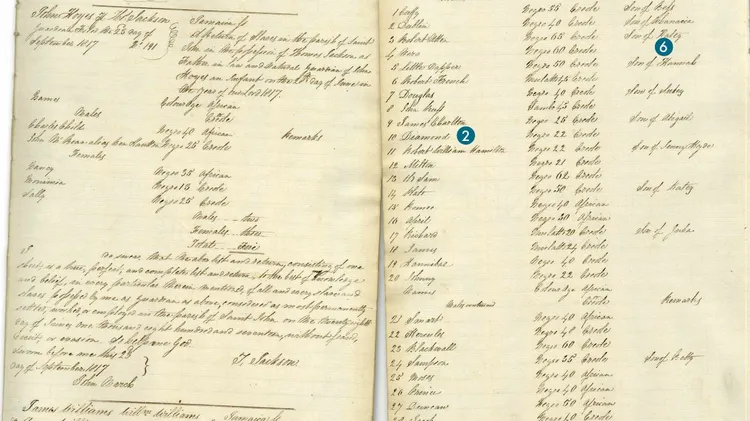 John Hoyes of Thos Jackson
Guardian
September 1817
Jamaica Ss
A Return of Slaves in the parish of Saint
John in the possession of Thomas Jackson as
Father in law and Natural Guardian of John
Hoyes an Infant on the 28th day of June in
the year of our Lord 1817
Names Colour Age African
Males Creole
Charles Child Negro 40 African Remarks
John Negro 25 Creole
Females
Nancy Negro 35 African
Monimia Negro 15 Creole
Sally Negro 25 Creole
Males two
Females three
Total five
I do swear that the above list and return, consisting of one
sheet, is a true, perfect, and complete list and return, to the best of my knowledge
and belief, in every particular therein mentioned, of all and every slave and
slaves possessed by me as Guardian as above, considered as most permanently
settled, worked, or employed in the parish of Saint John on the twenty eighth
day of June one thousand eight hundred and seventeen, without fraud,
deceit, or evasion. So help me God
Sworn before me this 23 T. Jackson
day of September 1817
John March
James Williams Jamaica Ss
1 Cuffy Negro 35 Creole Son of
2 Negro 40 Creole Son of
3 Robert Negro 65 Creole Son of
4 Nero Negro 60 Creole 6
5 Little Negro 50 Creole Son of Hannah
6 Robert French Mulatto 45 Creole
7 Douglas Negro 40 Creole Son of
8 John Sambo 45 Creole
9 James Charlton Negro 26 Creole Son of Abigail
10 Diamond 2 Negro 22 Creole
11 Robert William Hamilton Negro 22 Creole Son of Jenny
12 Milton Negro 21 Creole
13 Sam Negro 62 Creole
14 Negro 30 Creole Son of
15 Romeo Negro 40 African
16 April Negro 30 African
17 Richard Mulatto 20 Creole Son of Juba
18 James Mulatto 24 Creole
19 Hannibal Negro 40 Creole
20 Johnny Negro 22 Creole
Names Colour Age African
Males continued Creole Remarks
21 Smart Negro 40 African
22 Hercules Negro 40 Creole
23 Blackwall Negro 60 Creole
24 Sampson Negro 35 Creole Son of Betty
25 Moses Negro 40 African
26 Prince Negro 40 African
27 Duncan Negro 50 African
Negro 40 Creole